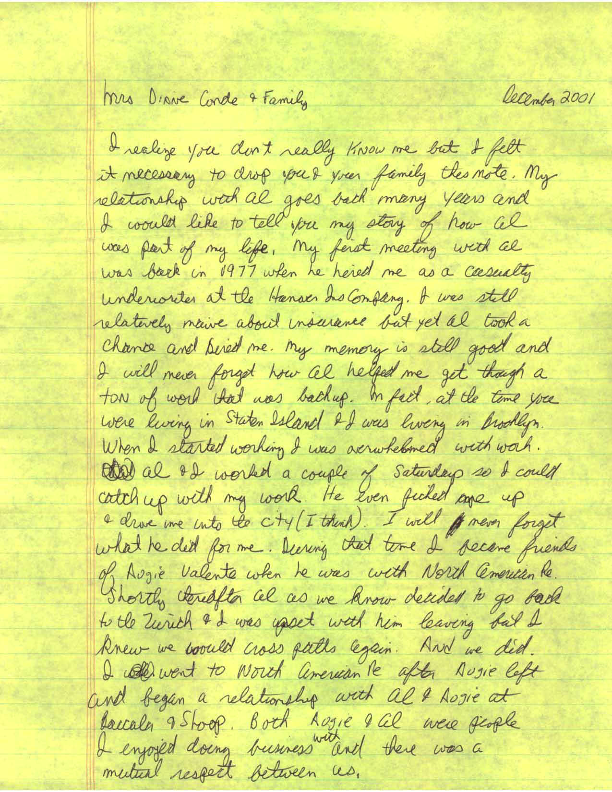 Mrs Diane Conde & Family December 2001
I realize you don't really know me but I felt
it necessary to drop you & your family this note. My
relationship with Al goes back many years and
I would like to tell you my story of how Al
was part of my life. My first meeting with Al
was back in 1977 when he hired me as a casualty
underwriter at the Hanseco Ins Company. I was still
relatively naive about insurance but yet Al took a
chance and hired me. My memory is still good and
I will never forget how Al helped me get though a
ton of work that was backup. In fact, at the time you
were living in Staten Island & I was living in Brooklyn.
When I started working I was overwhelmed with work.
Al & I worked a couple of Saturdays so I could
catch up with my work. He even picked me up
& drove me into the city (I think). I will never forget
what he did for me. During that time I became friends
of Augie Valente when he was with North American Re.
Shortly thereafter Al as we know decided to go back
to the Zurich & I was upset with him leaving but I
knew we would cross paths again. And we did.
I went to North American Re after Augie left
and began a relationship with Al & Augie at
Baccala & Shoop. Both Augie & Al were people
I enjoyed doing business with and there was a
mutual respect between us.